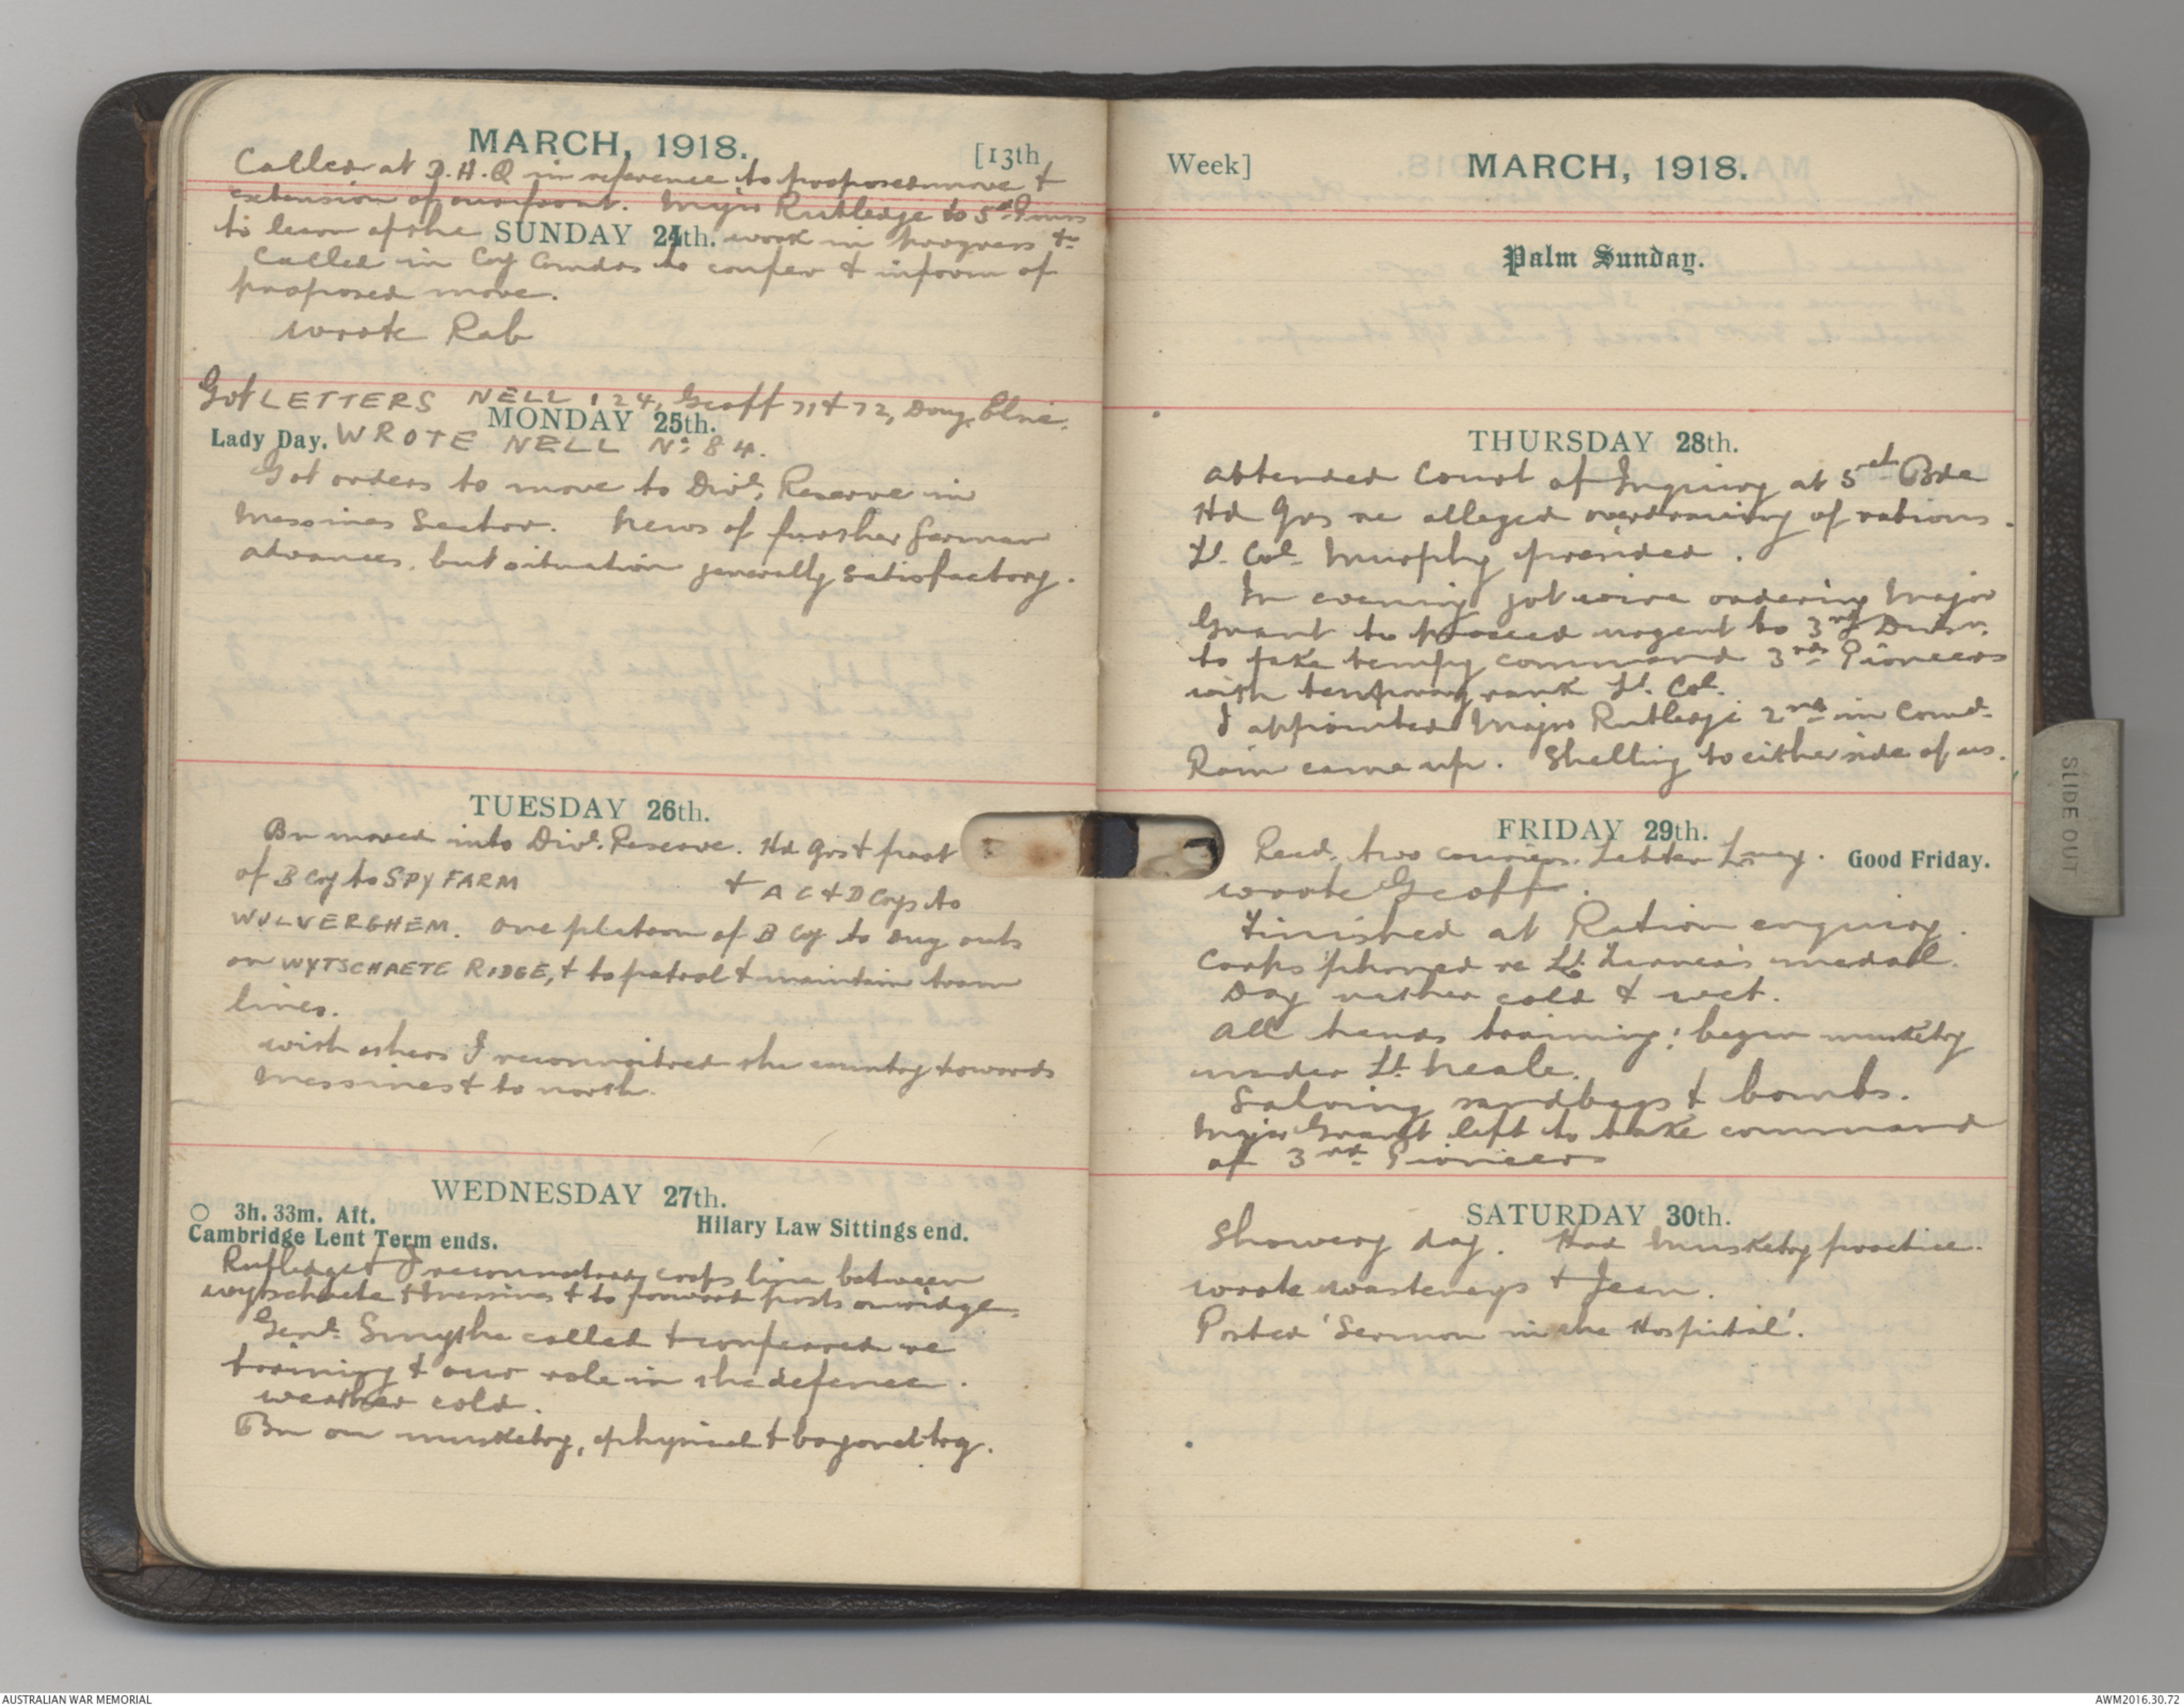 MARCH, 1918.
[13th
Called at D.H.Q in reference to proposed move &
extension of our front. Major Rutledge to 5th
to learn of the work in progress &c
SUNDAY 24th.
Called in Coy Comdrs to confer & inform of
proposed move.
Wrote Rab
Got LETTERS NELL 124, Geoff 71 & 72, Doug, Elsie.
MONDAY 25th.
Lady Day. WROTE NELL No: 84.
Got orders to move to Divl. Reserve in
Messines Sector. News of further German
advances, but situation generally satisfactory.
TUESDAY 26th.
Bn moved into Divl. Reserve. Hd Qrs & part
of B Coy to SPY FARM & A C & D Coys to
WULVERGHEM. One platoon of B Coy to dug outs
on WYTSCHAETE RIDGE, & to patrol & maintain tram
lines.
With others I reconnoitred the country towards
Messines & to north.
WEDNESDAY 27th.
3h. 33m. Aft.
Hilary Law Sittings end.
Cambridge Lent Term ends.
Rutledge & I reconnoitred corps line between
Wytschaete & Messines & to forward posts on ridge.
Genl. Smythe called & conferred re
training & our role in the defence.
Weather cold.
Bn on musketry, physical & bayonet trg.
Week]
MARCH, 1918.
Palm Sunday.
THURSDAY 28th.
Attended Court of Inquiry at 5th Bde
Hd Qrs re alleged overdrawing of rations.
Lt. Col. Murphy presided.
In evening got wire ordering Major
Grant to proceed urgent to 3rd Divsn.
to take tempy command 3rd Pioneers
with temporary rank Lt. Col.
I appointed Major Rutledge 2nd in Comd.
Rain came up. Shelling to either side of us.
FRIDAY 29th.
Good Friday.
Recd. two couriers. Letter
Wrote Geoff.
Finished at Ration enquiry.
Corps 'phoned re Lt. medal.
Day rather cold & wet.
All hands training; began musketry
under Lt. Neale.
Salving sandbags & bombs.
Major Grant left to take command
of 3rd Pioneers
SATURDAY 30th.
Showery day. Had musketry practice.
Wrote Wasteneys & Jean.
Posted 'Sermon in the Hospital'.
SLIDE OUT
AUSTRALIAN WAR MEMORIAL
AWM2016.30.72